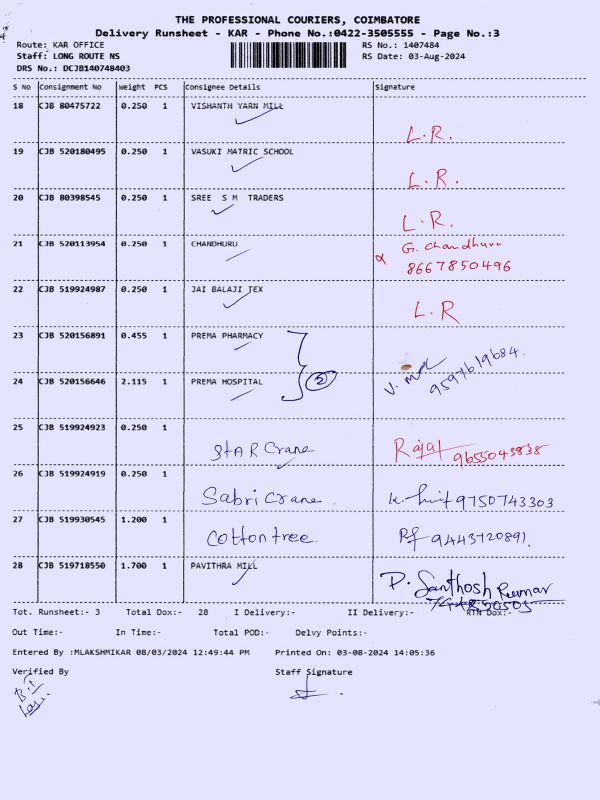 THE PROFESSIONAL COURIERS, COIMBATORE
Delivery Runsheet - KAR - Phone No.:0422-3505555 - Page No.:3
Route: KAR OFFICE RS No.: 1407484
Staff: LONG ROUTE NS RS Date: 03-Aug-2024
DRS No.: DCJB140748403
S No Consignment No Weight PCS Consignee Details Signature
18 CJB 80475722 0.250 1 VISHANTH YARN MILL
L.R.
19 CJB 520180495 0.250 1 VASUKI MATRIC SCHOOL
L.R.
20 CJB 80398545 0.250 1 SREE S M TRADERS
L.R.
21 CJB 520113954 0.250 1 CHANDHURU G. Chandhuru
8667850496
22 CJB 519924987 0.250 1 JAI BALAJI TEX
L.R
23 CJB 520156891 0.455 1 PREMA PHARMACY
2
9597619684.
24 CJB 520156646 2.115 1 PREMA HOSPITAL
25 CJB 519924923 0.250 1
StAR Crane 9655043838
26 CJB 519924919 0.250 1
Sabri Crane 9750743303
27 CJB 519930545 1.200 1
Cotton tree. 9443720891.
28 CJB 519718550 1.700 1 PAVITHRA MILL
P. Santhosh Kumar
Tot. Runsheet:- 3 Total Dox:- 28 I Delivery:- II Delivery:- RTN Dox:-
Out Time:- In Time:- Total POD:- Delvy Points:-
Entered By :MLAKSHMIKAR 08/03/2024 12:49:44 PM Printed On: 03-08-2024 14:05:36
Verified By Staff Signature